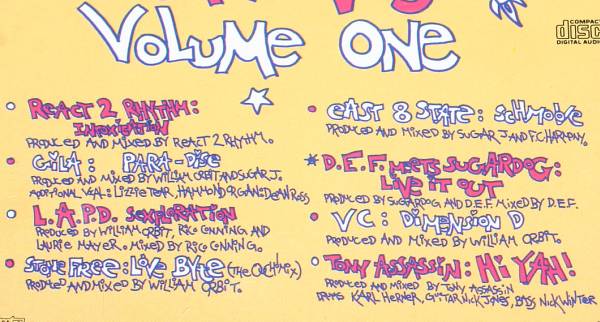 VOLUME ONE
COMPACT
disc
DIGITAL AUDIO
REACT 2 RHYTHM:
INTOXICATION
PRODUCED AND MIXED BY REACT 2 RHYTHM.
GILA: PARA-DISE
PRODUCED AND MIXED BY WILLIAM ORBIT AND SUGAR J.
ADDITIONAL VOCAL: LIZZIE TEAR, HAMMOND ORGAN: DEAN ROSS
L.A.P.D. SEXPLORATION
PRODUCED BY WILLIAM ORBIT, RICO CONNING, AND
LAURIE MAYER. MIXED BY RICO CONNING.
STONE FREE: LOVE BYTE (THE OUCH MIX)
PRODUCED AND MIXED BY WILLIAM ORBIT.
EAST 8 STATE: SCHMOOVE
PRODUCED AND MIXED BY SUGAR J AND F.C. HARMONY.
D.E.F. MEETS SUGARDOG:
LIVE IT OUT
PRODUCED BY SUGARDOG AND D.E.F. MIXED BY D.E.F.
VC: DIMENSION D
PRODUCED AND MIXED BY WILLIAM ORBIT.
TONY ASSASSIN: HI YAH!
PRODUCED AND MIXED BY TONY ASSASSIN
DRUMS KARL HERNER, GUITAR NICK JONES, BASS NICK WINTER